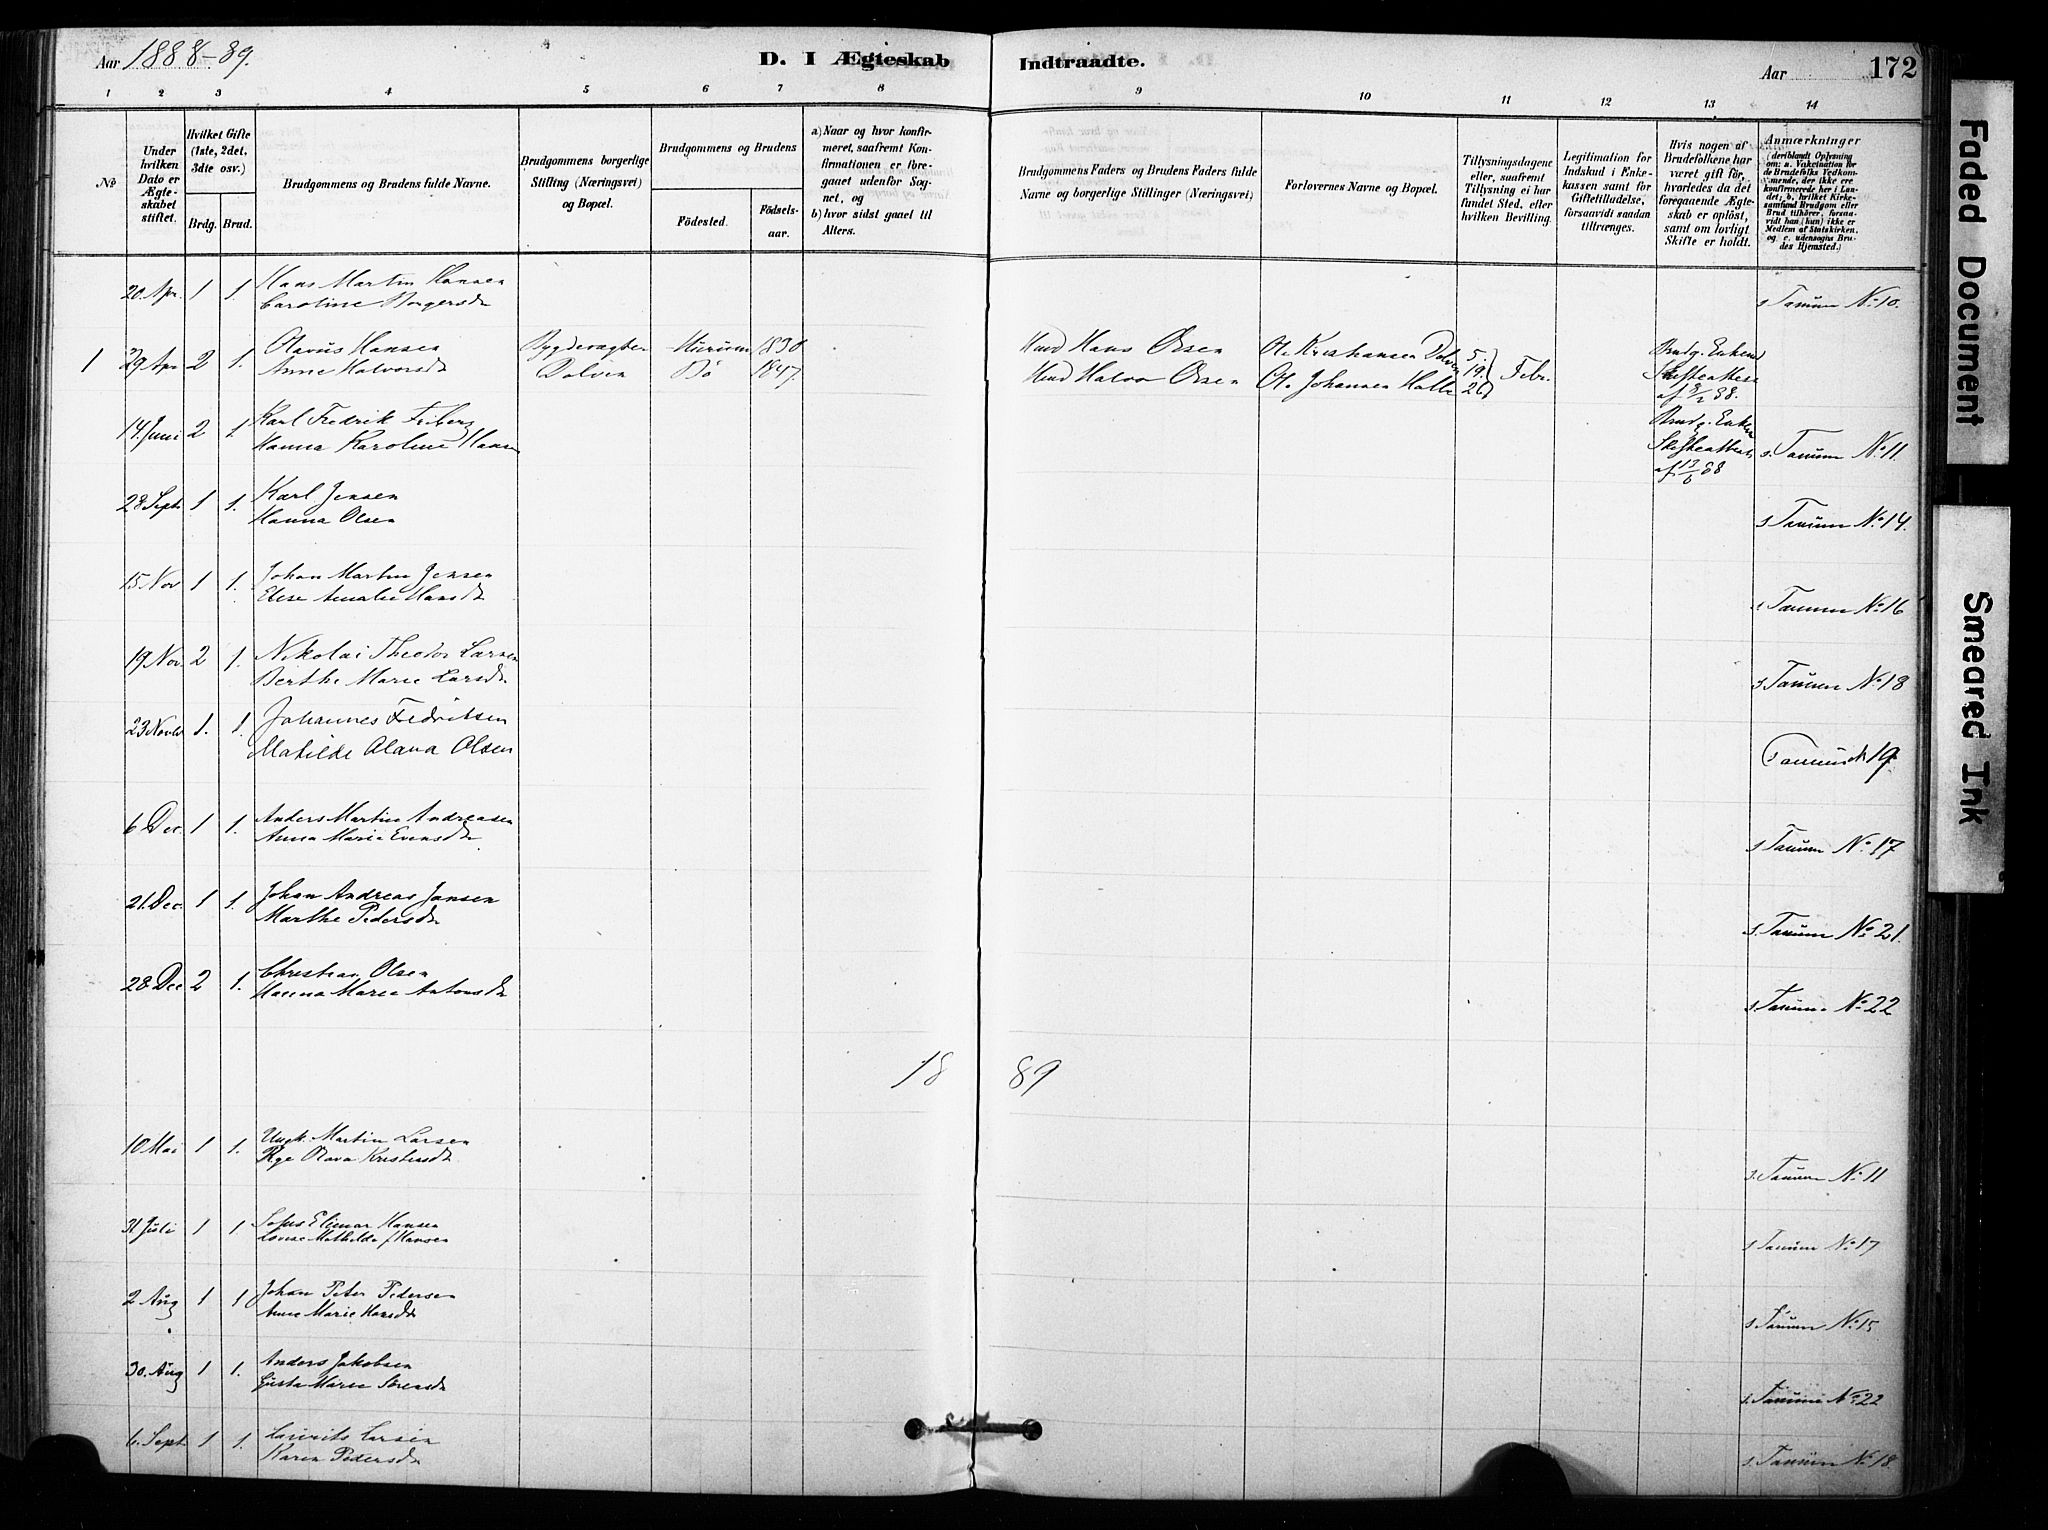 Aar 1888-89.
D. I Ægteskab Indtraadte.
Aar
172
1 2 3 4 5 6 7 8 9 10 11 12 13 14
No
Under hvilken Dato er Ægteskabet stiftet.
Hvilket Gifte (1ste, 2det, 3dte osv.)
Brdg. Brud.
Brudgommens og Brudens fulde Navne.
Brudgommens borgerlige Stilling (Næringsvei) og Bopæl.
Brudgommens og Brudens
Födested.
Födsels-aar.
a) Naar og hvor konfirmeret, saafremt Konfirmationen er foregaaet udenfor Sognet, og
b) hvor sidst gaaet til Alters.
Brudgommens Faders og Brudens Faders fulde Navne og borgerlige Stillinger (Næringsvei)
Forlovernes Navne og Bopæl.
Tillysningsdagene eller, saafremt Tillysning ei har fundet Sted, efter hvilken Bevilling.
Legitimation for Indskud i Enkekassen samt for Giftetilladelse, forsaavidt saadan tiltrænges.
Hvis nogen af Brudefolkene har været gift för, hvorledes da det foregaaende Ægteskab er oplöst, samt om lovligt Skifte er holdt.
Anmærkninger (deriblandt Oplysning om: a. Vakcination for de Brudefolks Vedkommende, der ikke ere konfirmerede her i Landet; b. hvilket Kirkesamfund Brudgom eller Brud tilhörer, forsaavidt han (hun) ikke er Medlem af Statskirken, og c. udensogns Brudes Hjemsted.)
20 Apr. 1 1. Hans Martin Hansen
Caroline Borgersdr
s Tanum No 10.
1 29 Apr 2 1. Olavus Hansen Bygdevægter Hurum 1830
Anne Halvorsdr Dolven Bö 1847.
Hmd Hans Olsen Ole Kristiansen Dolven 5.
Hmd Halvor Olsen Ol. Johannsen Halle 19. 26 Febr.
Brudg. Enkem
Skifteattest
af 8/2 88.
14. Juni 2 1 Karl Fredrik Friberg
Hanna Karoline Hansen
Brudg. Enkem
Skifteattest
af 13/6 88
s. Tanum No 11.
28 Sept. 1 1. Karl Jensen
Hanna Olsen
s Tanum No 14.
15. Nov 1 1. Johan Martin Jensen
Elise Amalie Hansdr
s Tanum No 16
19 Nov. 2 1. Nikolai Theodor Larsen
Berthe Marie Larsdr
s Tanum No 18
23 Novb 1. 1. Johannes Fredriksen
Matilde Olava Olsen
s Tanum No 19.
6 Dec. 1 1. Anders Martin Andreasen
Anna Maria Evensdr
s Tanum No 17
21. Dec. 1 1. Johan Andreas Jansen
Marthe Pedersdr
s. Tanum No 21.
28. Dec 2 1. Christian Olsen
Hanna Marie Antonsdr
s. Tanum No 22
18 89
10 Mai 1 1. Ungk. Martin Larsen
Pige Olava Kristensdr
s. Tanum No 11
31 Juli 1 1. Sofus Elimar Hansen
Lovise Mathilde f Hansen
s Tanum No 17
2 Aug 1 1 Johan Peter Pedersen
Anne Marie Hansdr
s Tanum No 15
30. Aug 1 1. Anders Jakobsen
Gusta Marie Sörensdr
s. Tanum No 22
6. Sept 1 1. Laurits Larsen
Karen Pedersdr
s. Tanum No 18.
Faded Document
Smeared Ink